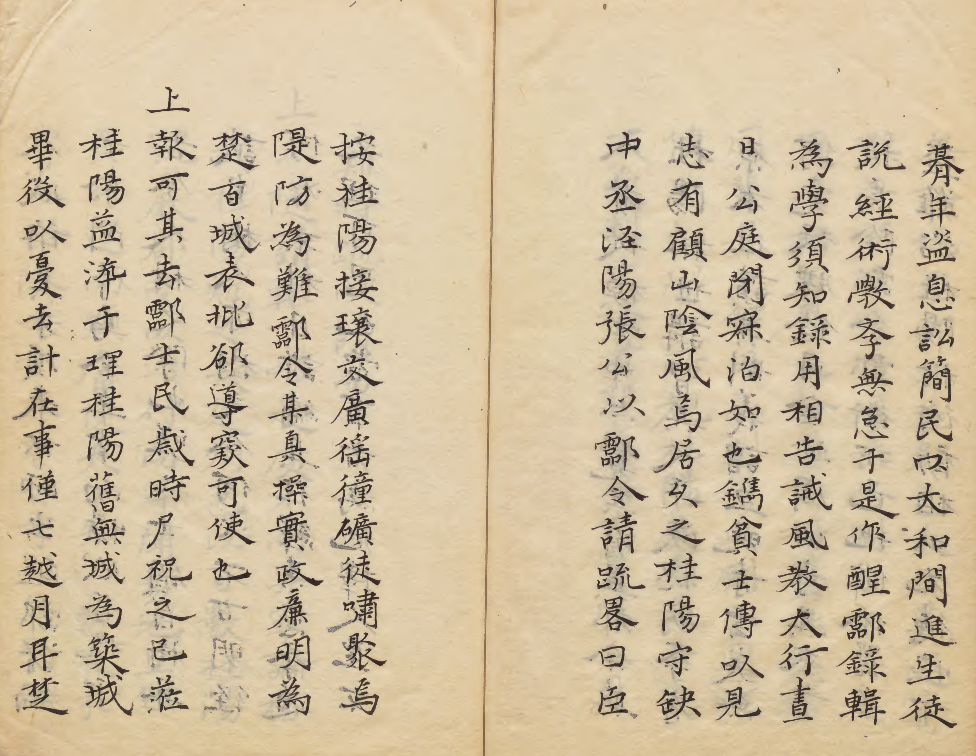 朞年盜息訟簡民以大和間進生徒
說經術斆李無怠于是作醒酃錄輯
為學須知錄用相告誡風教大行晝
日公庭閉寐泊如也鐫貧士傳以見
志有顧山陰風焉居久之桂陽守缺
中丞涇陽張公以酃令請疏畧曰臣
按桂陽接壤交廣徭獞礦徒嘯聚焉
隄防為難酃令某真操實政廉明為
楚百城表批郤導窽可使也
上
報可其去酃士民歲時尸祝之已蒞
桂陽益濟于理桂陽舊無城為築城
畢役以憂去計在事僅七越月耳楚